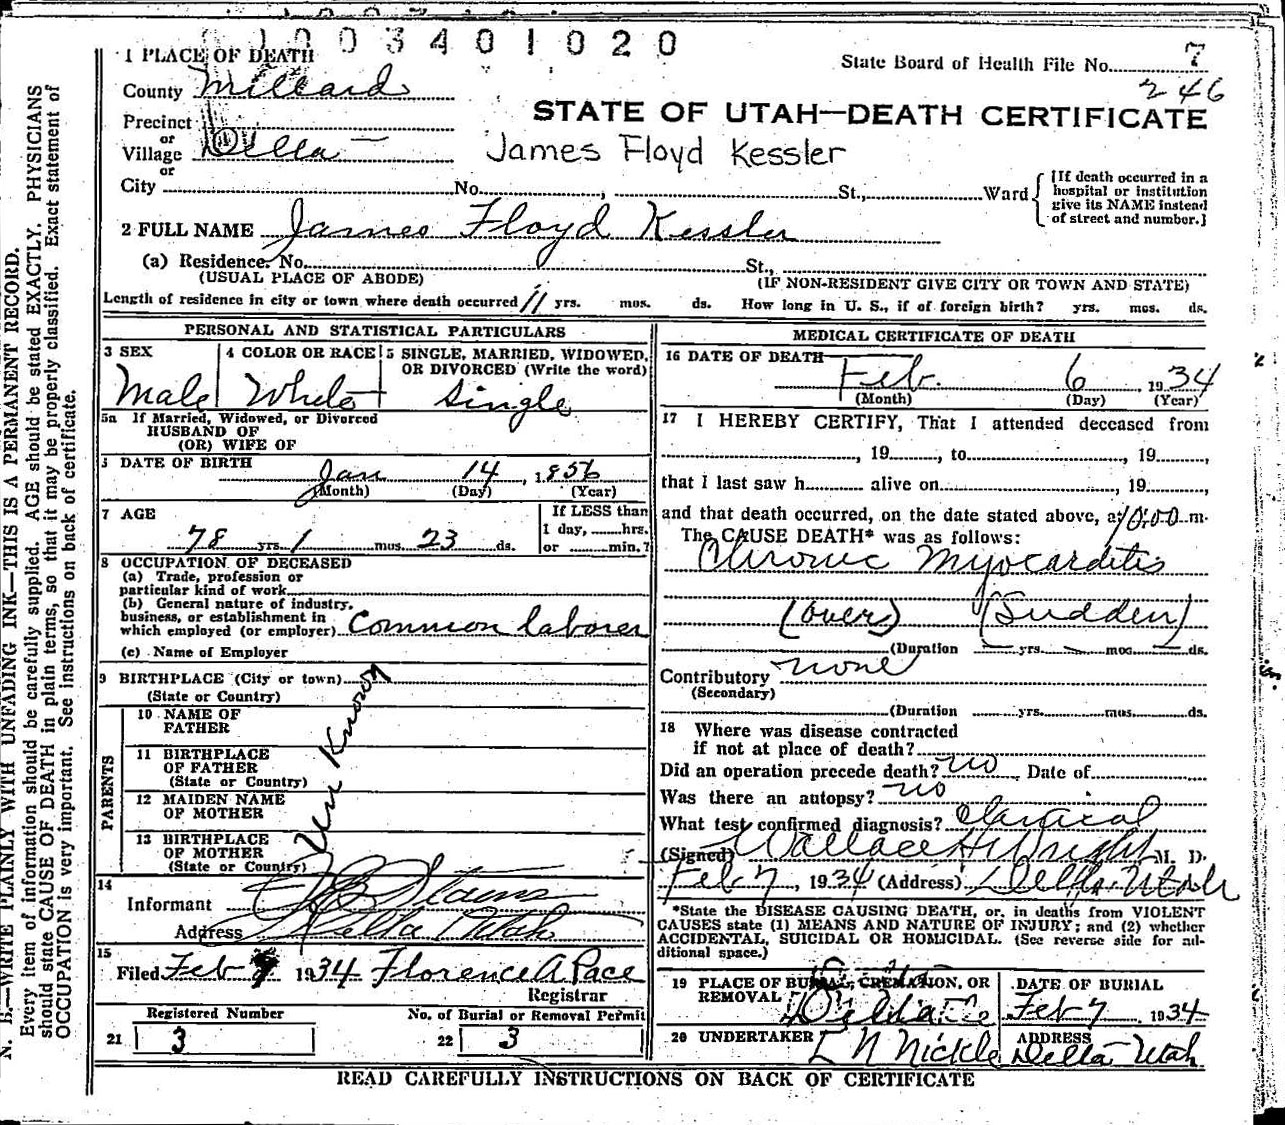 1003401020
1 PLACE OF DEATH
State Board of Health File No. 7
246
County Millard
STATE OF UTAH—DEATH CERTIFICATE
Precinct
or
Village Delta
James Floyd Kessler
or
City No. , St., Ward
[If death occurred in a
hospital or institution
give its NAME instead
of street and number.]
2 FULL NAME James Floyd Kessler
(a) Residence. No. St.,
(USUAL PLACE OF ABODE) (IF NON-RESIDENT GIVE CITY OR TOWN AND STATE)
Length of residence in city or town where death occurred 11 yrs. mos. ds. How long in U. S., if of foreign birth? yrs. mos. ds.
PERSONAL AND STATISTICAL PARTICULARS
3 SEX 4 COLOR OR RACE 5 SINGLE, MARRIED, WIDOWED,
OR DIVORCED (Write the word)
Male White Single
5a If Married, Widowed, or Divorced
HUSBAND OF
(OR) WIFE OF
DATE OF BIRTH
Jan 14, 1856
(Month) (Day) (Year)
7 AGE
If LESS than
1 day, hrs.
or min.?
78 yrs. 1 mos. 23 ds.
8 OCCUPATION OF DECEASED
(a) Trade, profession or
particular kind of work
(b) General nature of industry,
business, or establishment in
which employed (or employer) Common laborer
(c) Name of Employer
9 BIRTHPLACE (City or town)
(State or Country)
PARENTS
10 NAME OF
FATHER
11 BIRTHPLACE
OF FATHER
(State or Country)
12 MAIDEN NAME
OF MOTHER
13 BIRTHPLACE
OF MOTHER
(State or Country)
Un Known
14
Informant
Address Delta Utah
15
Filed Feb 1934 Florence A Pace
Registrar
Registered Number No. of Burial or Removal Permit
21 3 22 3
MEDICAL CERTIFICATE OF DEATH
16 DATE OF DEATH
Feb. 6, 1934
(Month) (Day) (Year)
17 I HEREBY CERTIFY, That I attended deceased from
, 19 , to , 19 ,
that I last saw h alive on , 19 ,
and that death occurred, on the date stated above, at 10:00 m.
The CAUSE DEATH* was as follows:
Chronic Myocarditis
(over) (Sudden)
(Duration — yrs. — mos. — ds.
Contributory none
(Secondary)
(Duration yrs. mos. ds.
18 Where was disease contracted
if not at place of death?
Did an operation precede death? no Date of
Was there an autopsy? no
What test confirmed diagnosis?
(Signed) Wallace H Wright M. D.
Feb 7, 1934 (Address) Delta Utah
*State the DISEASE CAUSING DEATH, or, in deaths from VIOLENT
CAUSES state (1) MEANS AND NATURE OF INJURY; and (2) whether
ACCIDENTAL, SUICIDAL OR HOMICIDAL. (See reverse side for additional space.)
19 PLACE OF BURIAL, CREMATION, OR
REMOVAL
DATE OF BURIAL
Feb 7 1934
20 UNDERTAKER L N Nickle
ADDRESS
Delta Utah
READ CAREFULLY INSTRUCTIONS ON BACK OF CERTIFICATE
N. B.—WRITE PLAINLY WITH UNFADING INK—THIS IS A PERMANENT RECORD.
Every item of information should be carefully supplied. AGE should be stated EXACTLY. PHYSICIANS
should state CAUSE OF DEATH in plain terms, so that it may be properly classified. Exact statement of
OCCUPATION is very important. See instructions on back of certificate.